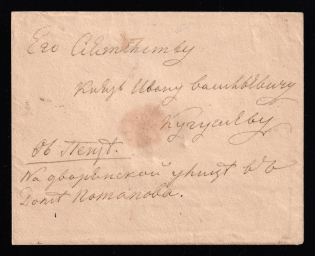 Его Сіятельству
Князю Ивану Васильевичу
Кугушеву
въ Пензѣ.
На дворянской улицѣ въ
домѣ Потапова.